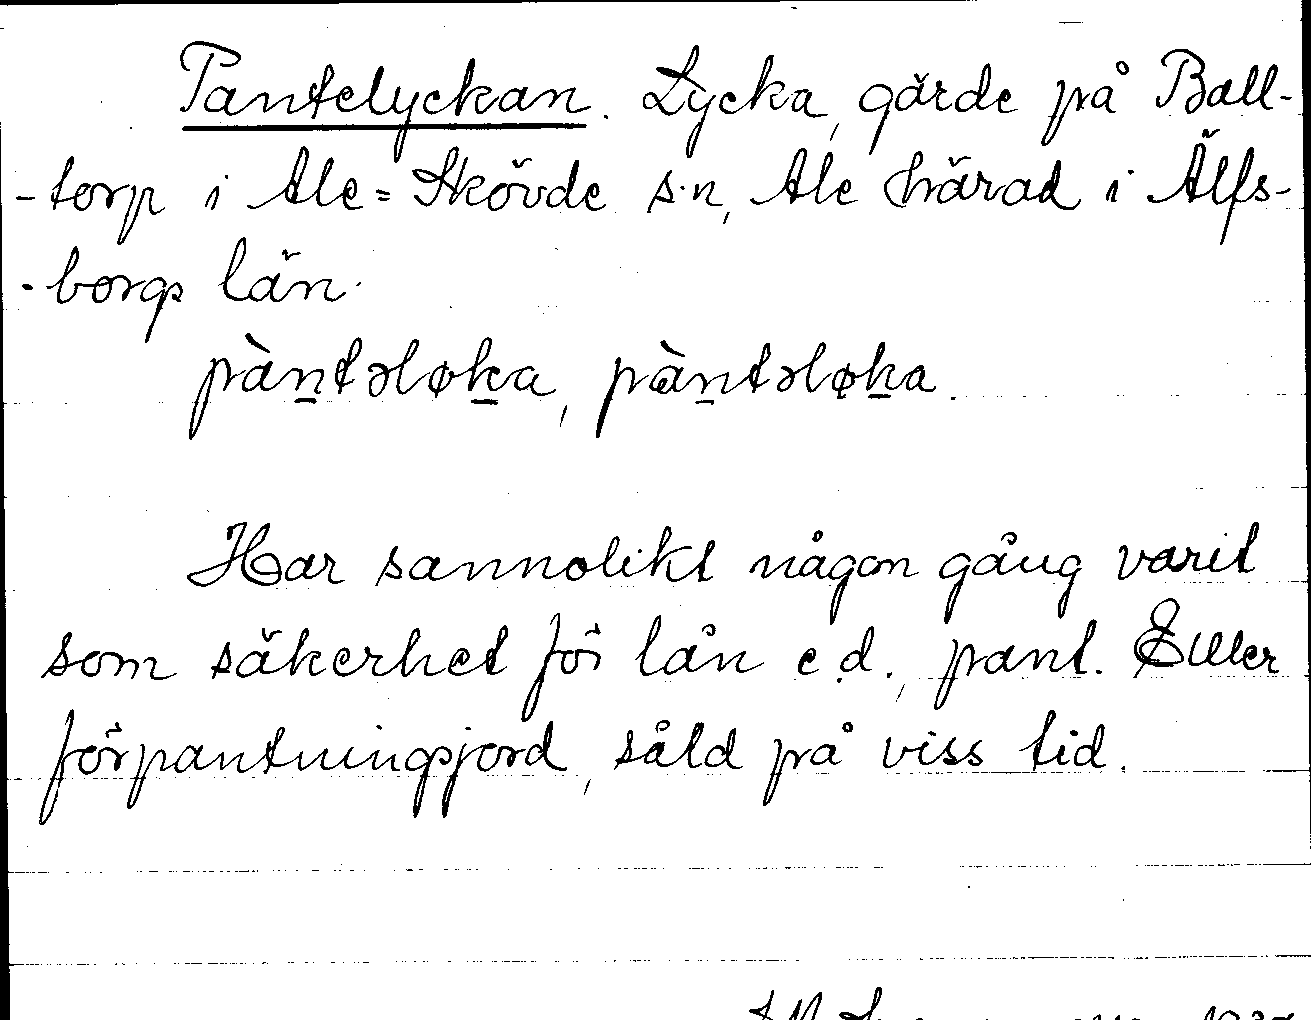 Pantelyckan. Lycka, gärde på Ball-
-torp i Ale=Skövde s:n, Ale härad i Älfs-
-borgs län.
pàn̲tələk̲a, pàn̲tələk̲a.
Har sannolikt någon gång varit
som säkerhet för lån e.d., pant. Eller
förpantningsjord, såld på viss tid.